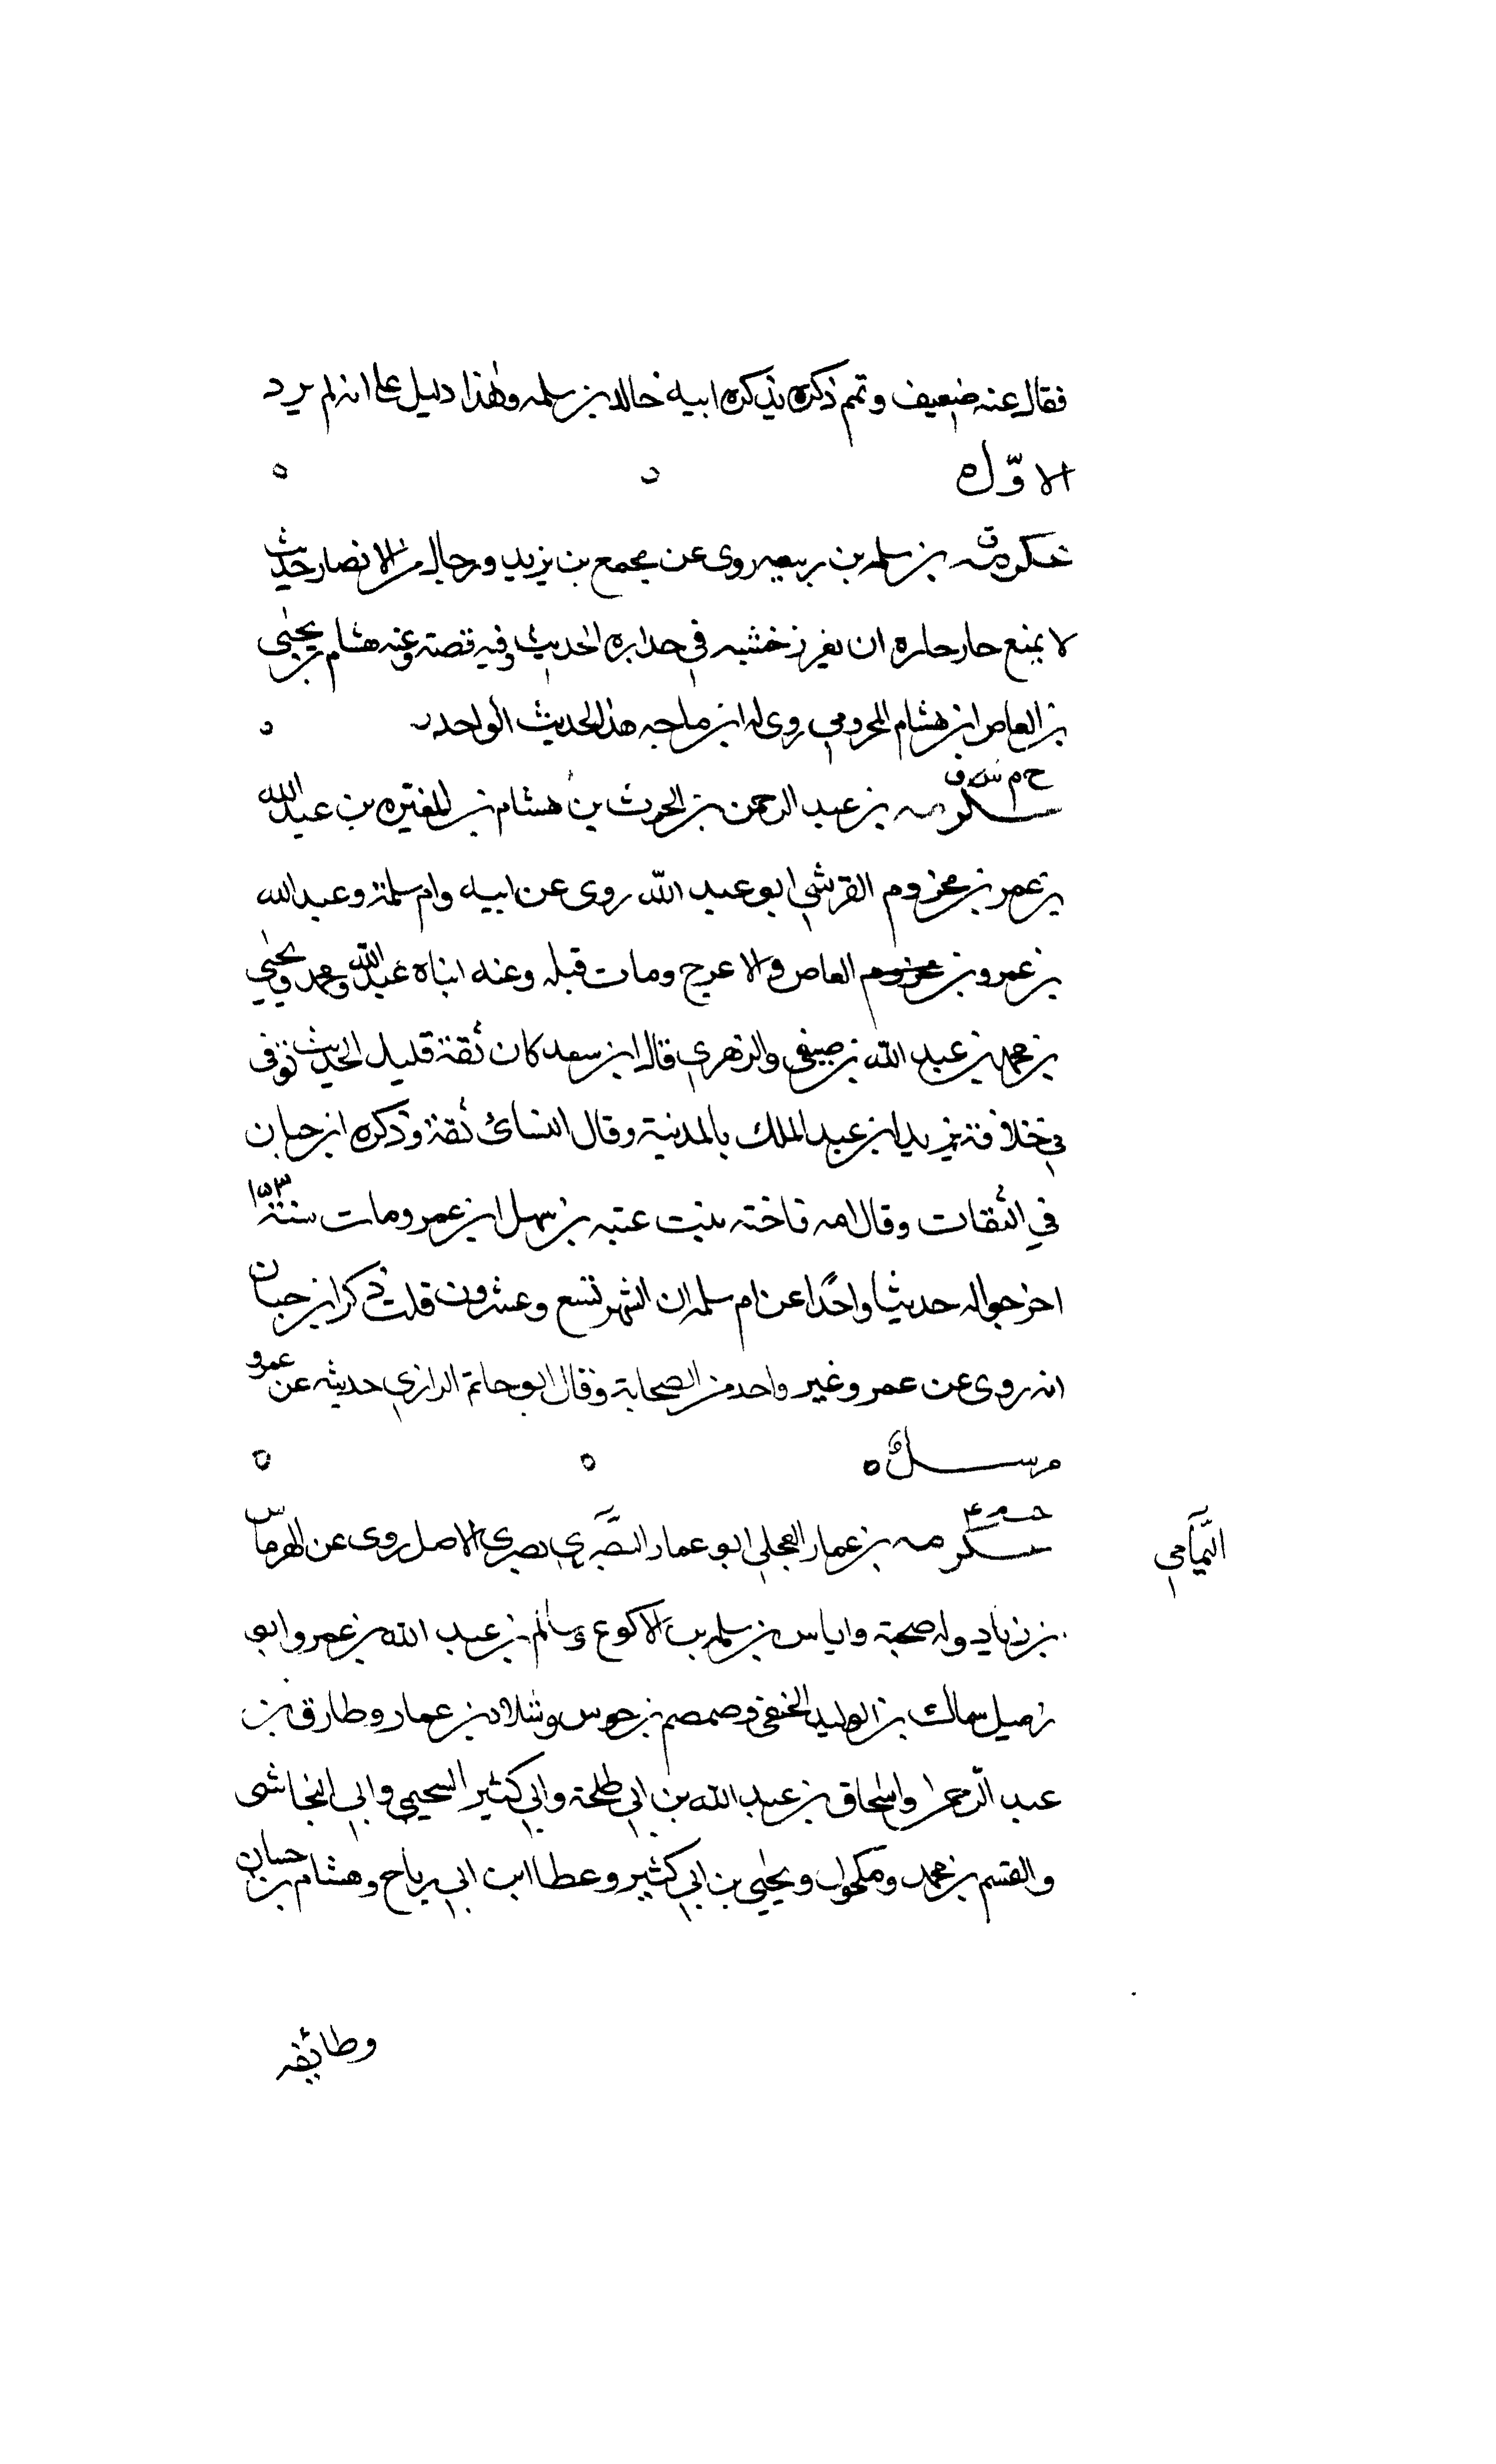 فقال عنه ضعيف وتمم ذكره بذكره ابيه خالد بن سلمه وهذا دليل على انه لم يرد
الاوّل ه
ق
عكرمه بن سلمه بن ربيعه روى عن مجمع بن يزيد ورجال من الانصار حديث
لا يمنع جار جاره ان يغرز خشبه في جداره الحديث وفيه قصة وعنه هشام بن يحيى
بن العاص ابن هشام المخزومي روى له ابن ماجه هذا الحديث الواحد
خ م س ق
عكرمه بن عبد الرحمن بن الحرث بن هشام بن المغيره بن عبد الله
بن عمر بن مخزوم القرشي ابو عبد الله روى عن ابيه وام سلمة وعبد الله
بن عمرو بن مخزوم العاص والاعرج ومات قبله وعنه ابناه عبد الله ومحمد ويحيى
بن محمد بن عبد الله بن صيفي والزهري قال ابن سعد كان ثقة قليل الحديث توفي
في خلافة يزيد ابن عبد الملك بالمدينة وقال النسائ ثقة وذكره ابن حبان
في الثقات وقال امه فاخته بنت عتبه بن سهل ابن عمر ومات سنة ١٥٣
اخرجوا له حديثا واحدًا عن ام سلمه ان الشهر تسع وعشرون قلت ذكر ابن حبان
انه روى عن عمر وغير واحد من الصحابة وقال ابو حاتم الرازي حديثه عن عمرو
مرسل ه
عكرمه بن عمار العجلي ابو عمار البصري بصري الاصل روى عن الهرماس
اليمامي
بن زياد وله صحبة واياس بن سلمه بن الاكوع وسالم بن عبد الله بن عمر وابو
زميل سماك بن الوليد الحنفي وضمضم بن جوس وشداد بن عمار وطارق بن
عبد الرحمن واسحاق بن عبد الله بن ابي طلحة وابي كثير السحيمي وابي النجاشي
والقسم بن محمد ومكحول ويحيى بن ابي كثير وعطا ابن ابي رباح وهشام بن حسان
وطائفه